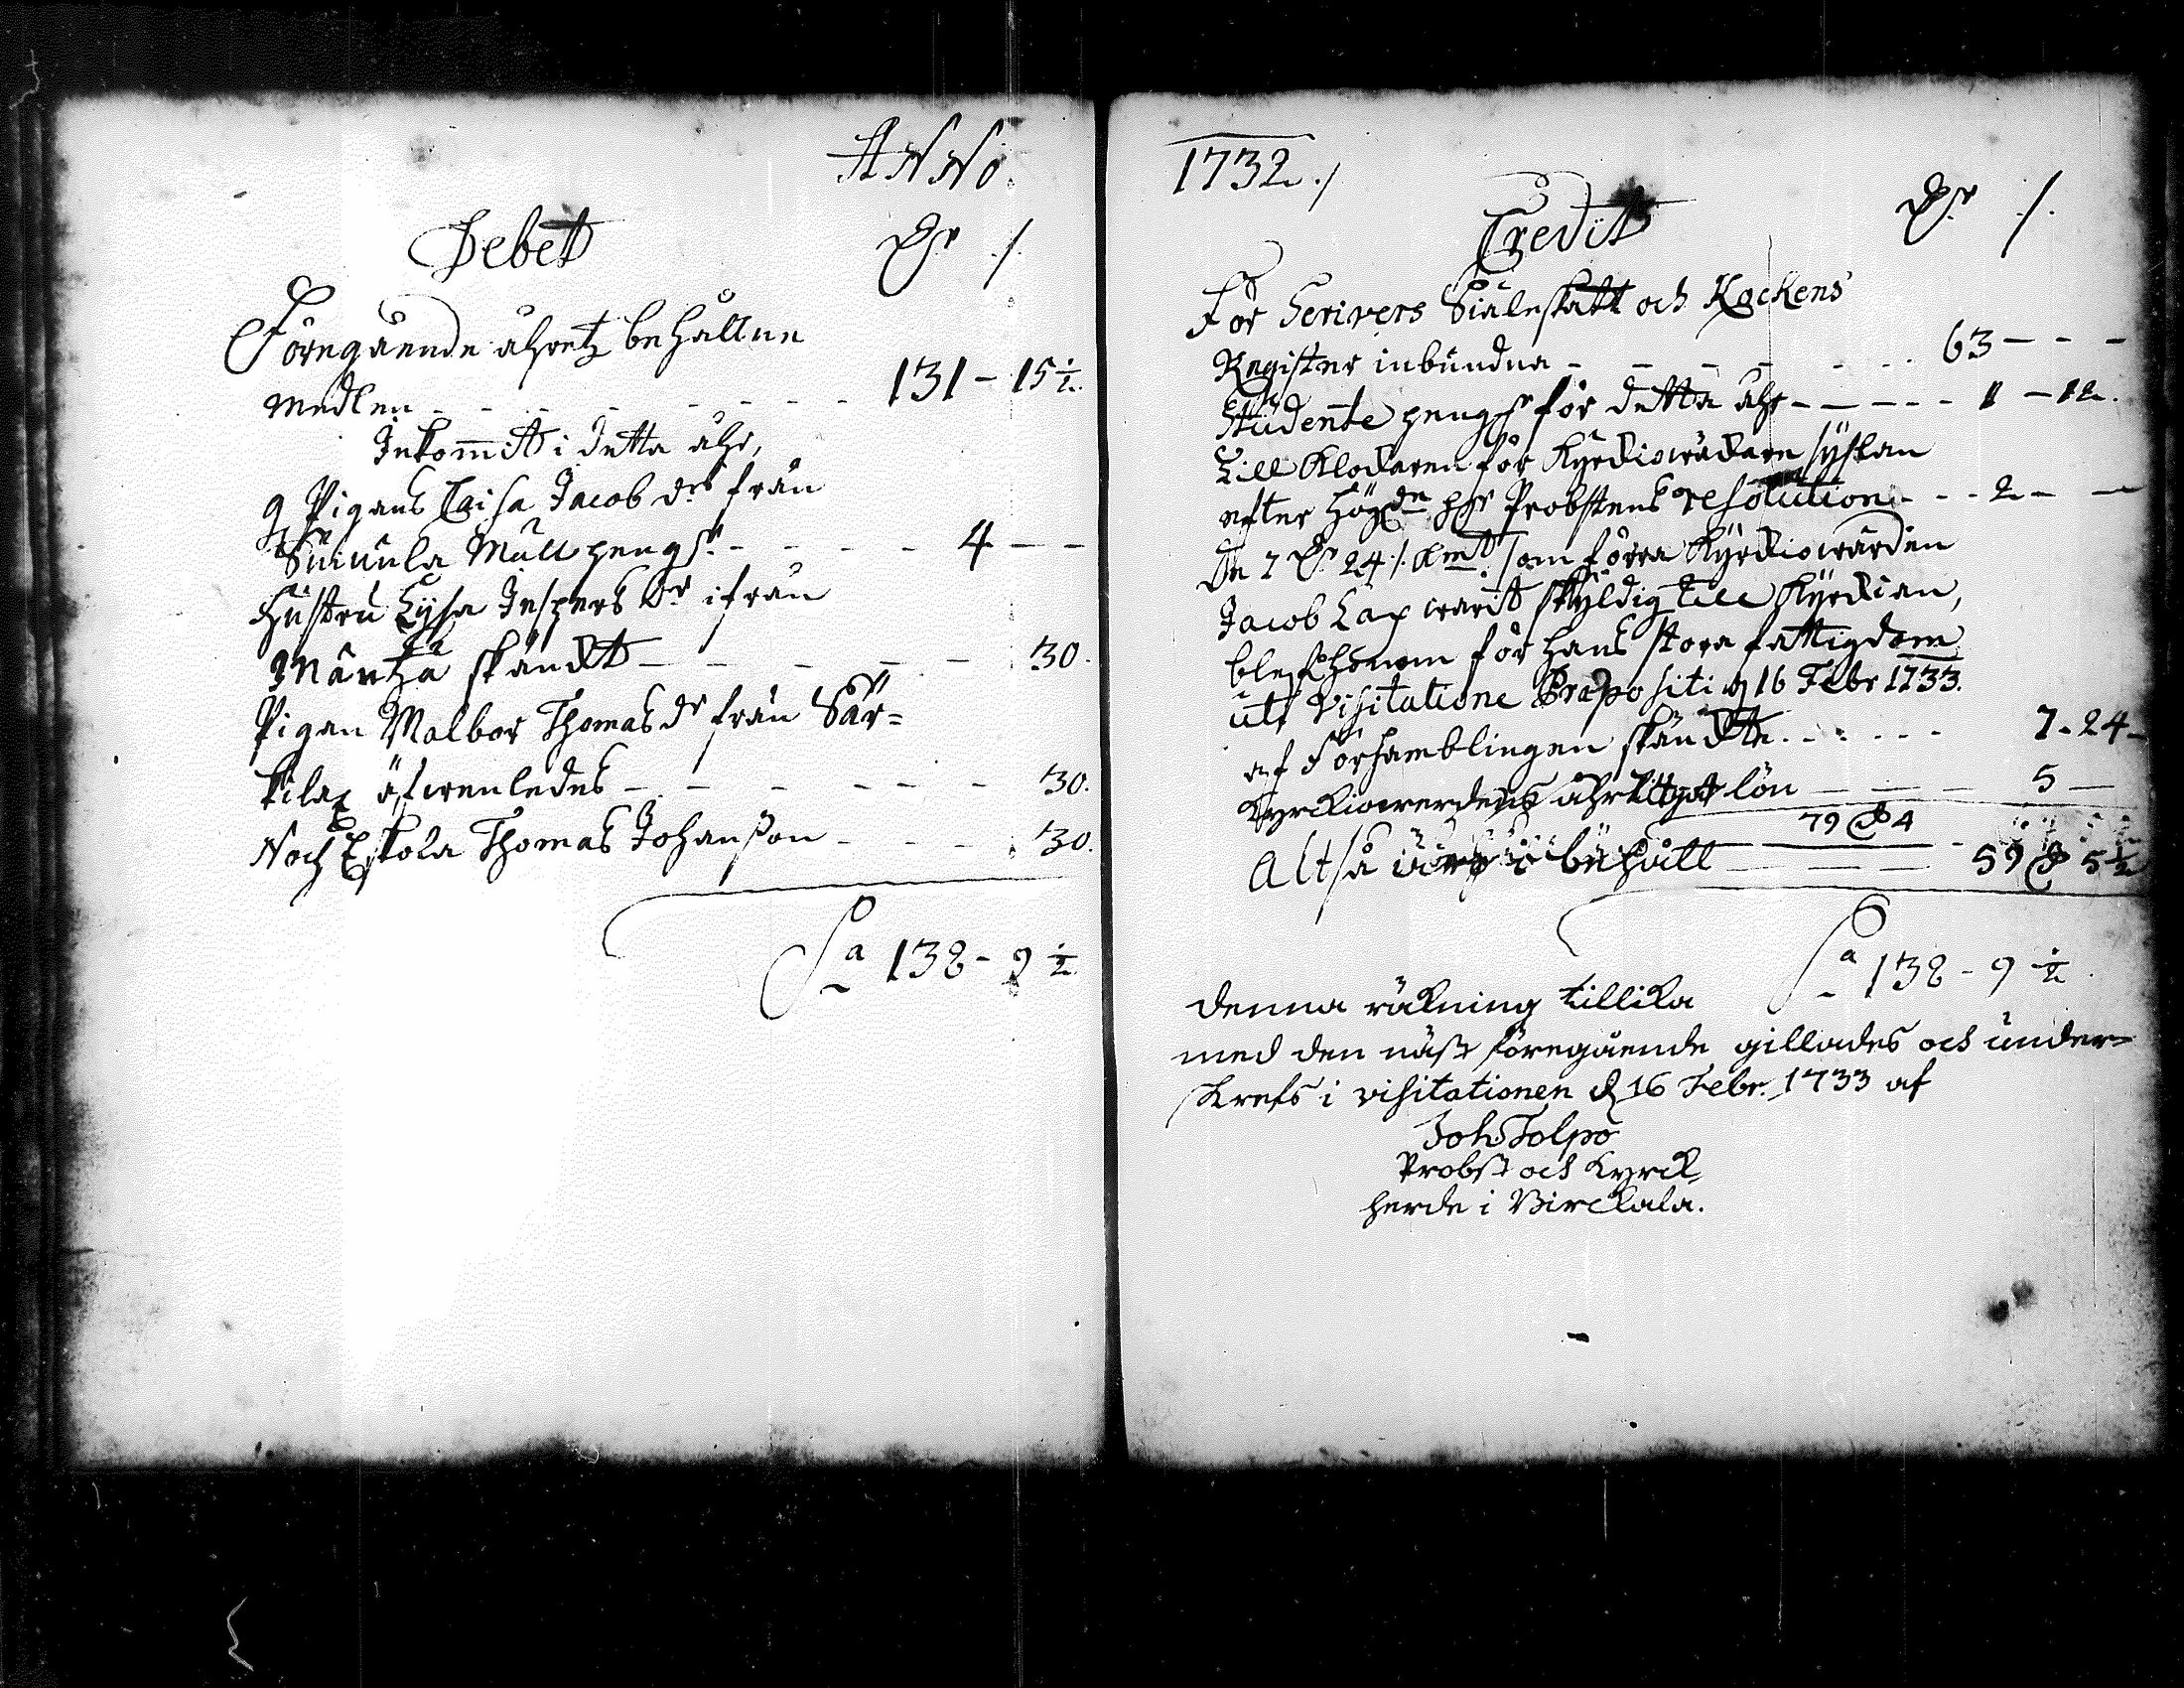 ANNO.
Debet Dr ./.
Föregående åhretz behåldne
medlen - - - - - - - - 131 - 15 ½.
Inkommit i detta åhr,
Pigans Caisa Jacobs dr från
Suiuula Mull peng:r - - - - - 4 - -
Hustru Lysa Jespers dr ifrån
Mäntzä skänckt - - - - - 30.
Pigan Malbor Thomas dr från Sär=
kilax äfwenledes - - - - - - 30.
Noch Eskola Thomas Johanßon - - - - 30.
Sa 138 - 9 ½.
1732 ./
Credit Dr ./.
För Scrivers Siäleskatt och Kockens
Register inbundna - - - - - - 63 - - -
Studente peng:r för detta åhr - - - - - 1 - 12.
Till Klockaren för Kyrckiowäckare sysslan
efter Höga H:r Probstens resolution - - - 2 - -
De 7 Dr 24 ./. Kmt. som förra Kyrckiowärden
Jacob Lax warit skyldig till Kyrckian,
blef honom för hans stora fattigdom
uti Visitatione Præpositi d 16 Febr 1733.
af Församblingen skänckte - - - - - - 7 - 24 -
Kyrckiowerdens åhrliga lön - - - - 5 -
79 D 4
Altså är i behåll - - - - 59 D 5 ½
Sa 138 - 9 ½
Denna räkning tillika
med den näst föregående gillades och under=
skrefs i visitationen d 16 Febr. 1733 af
Joh. Tolpo
Probst och Kyrck
herde i Birckala.